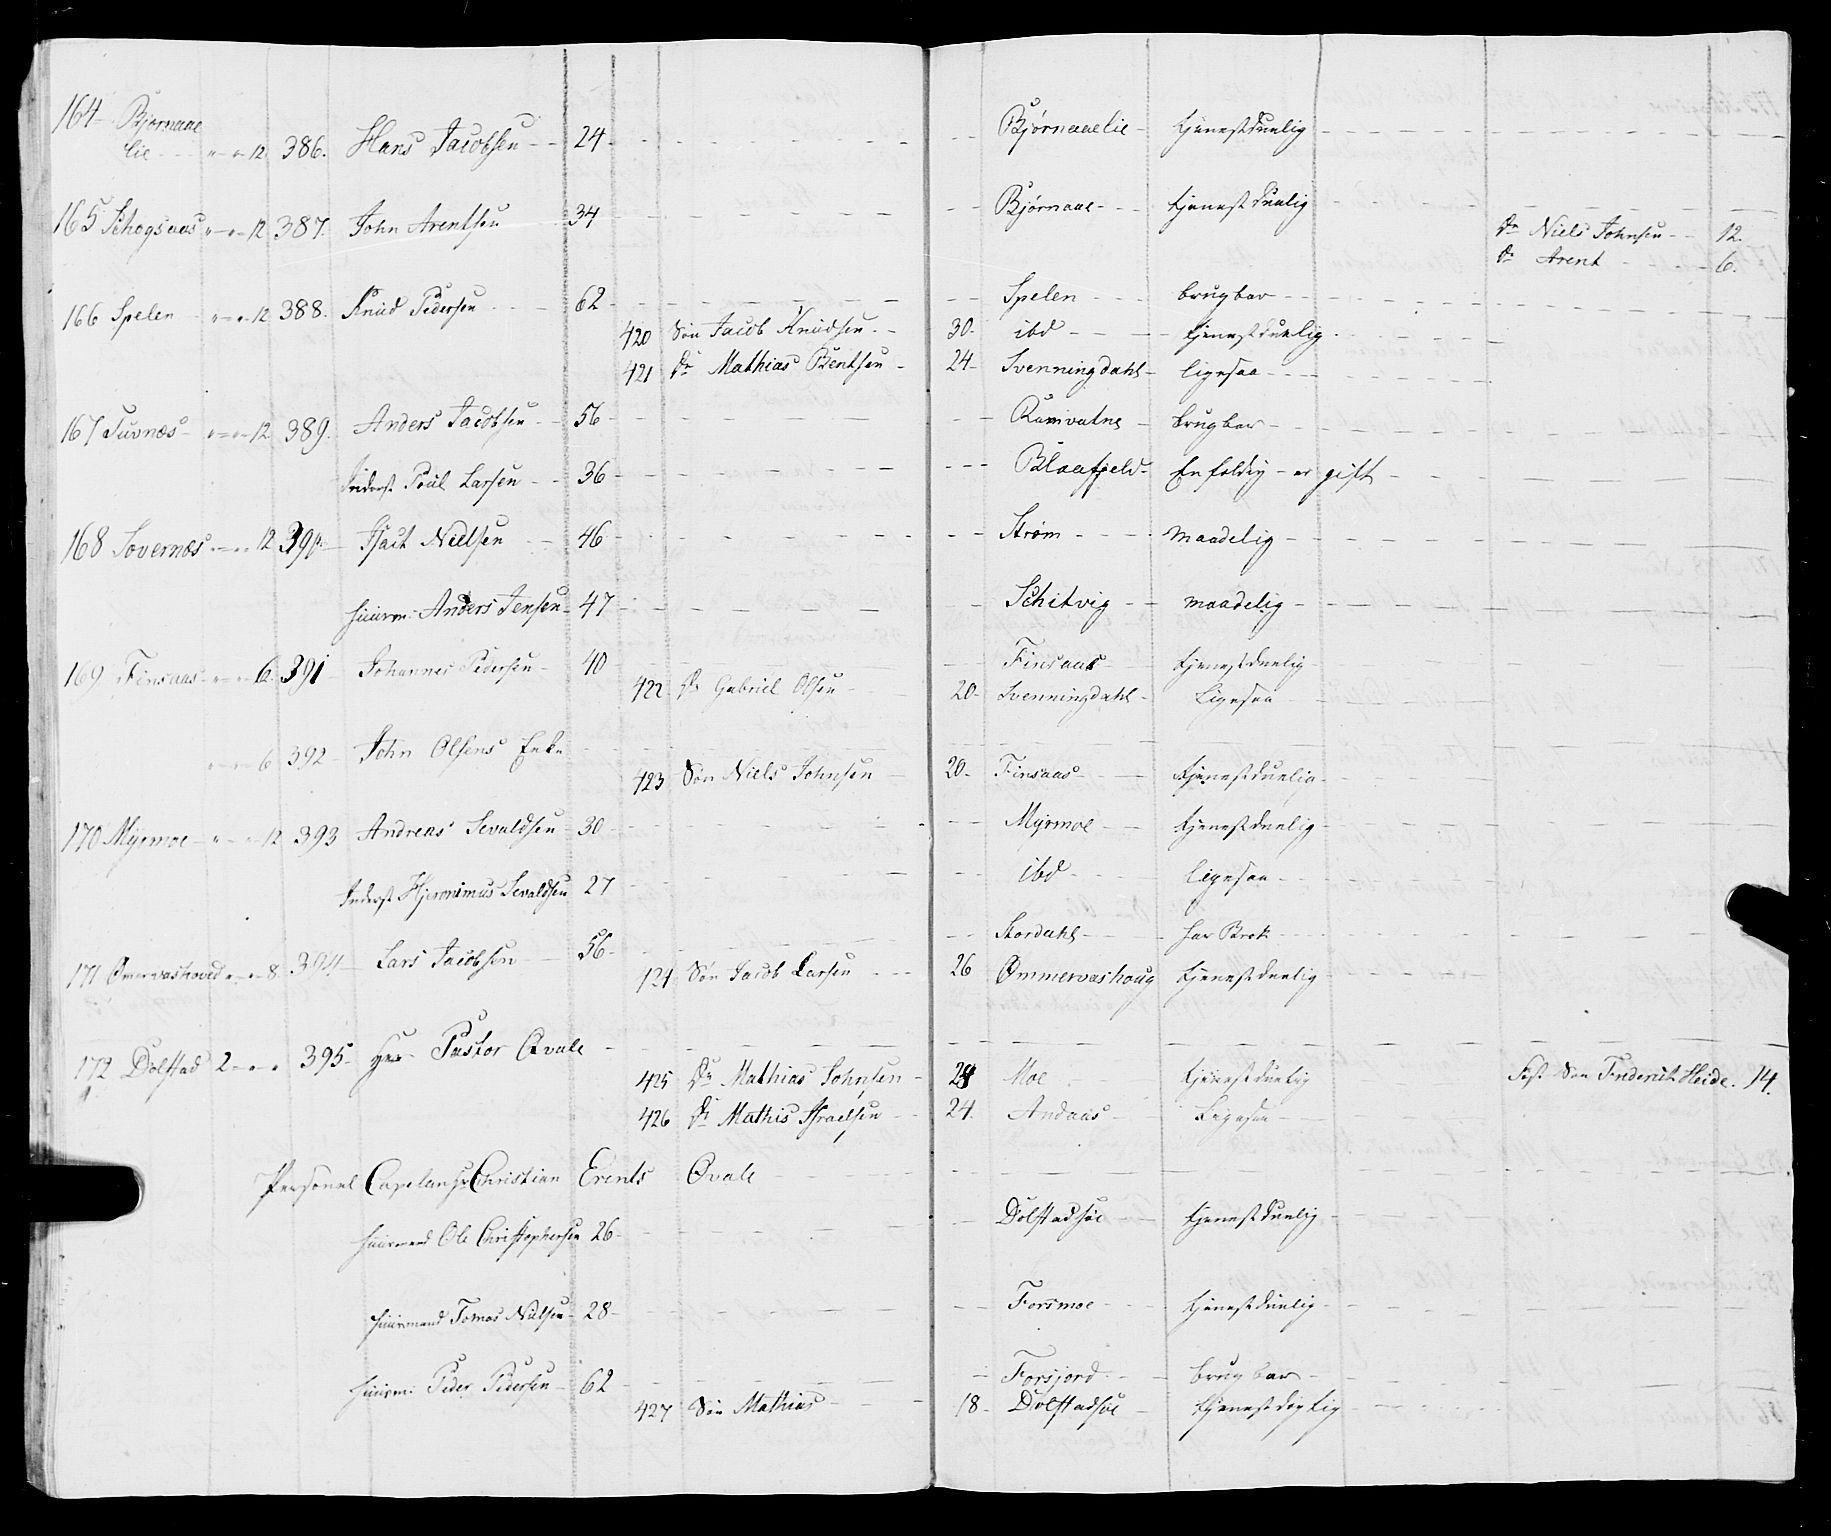 164 - Bjørnaae
lie - - - " - " - 12 386. Hans Jacobsen - - 24 - Bjørnaaelie - tjenestduelig
165 Schogsaas " - " - 12 387. John Arentsen 34 Bjørnaae - - - tjenestduelig
Dr Niels Johnsen - - 12.
Dr Arent - - - - 6.
166 Spelen " - " - 12 388. Knud Pedersen - - - 62 Spelen - - - brugbar
420 Søn Jacob Knudsen - - 30 - ibd - - - - tjenestduelig
421 Dr Mathias Bentsen - 24 - Svenningdahl - ligesaa
167 Tuvnæs - " - " - 12 389. Anders Jacobsen - - 56 - brugbar
Inderst Poul Larsen - - 36 - Blaafjeld - Enfoldig - er gift
168 Sovernæs " - " - 12 390 - Isach Nielsen - - 46 - Strøm - - - - maadelig
Huusm: Anders Jensen - 47 - Schitvig - - maadelig
169 Finsaas - " - " - 6. 391 Johannes Pedersen - 40 Finsaas - tjenestduelig
422 Dr Gabriel Olsen - 20 - Svenningdahl - Ligesaa
" - " - 6 392 - John Olsens Enke
423 Søn Niels Johnsen 20 - Finsaas - - tjenestduelig
170 Myrmoe - " - " - 12 393 Andreas Sevaldsen - 30 - Myrmoe - - tjenestduelig
Inderst Hjeronimus Sevaldsen 27 ibd - - - ligesaa
171 Ømervashoved " - " - 8 394 Lars Jacobsen 56 - Stordahl - - har Brok
424 Søn Jacob Larsen - - - 26 Ømmervashoug tjenestduelig
172 Dolstad 2 - " - " 395 - Her Pastor Qvale
425 Dr Mathias Johnsen - 24 Moe tjenestduelig Søn Frederich Heide. 14.
426 Dr Mathis Israelsen - - 24. Andaas - Ligesaa
Personel Capelan Hr Christian Erents Qvale
Huusmand Ole Christophersen 26 - Dolstadsøe - tjenestduelig
Huusmand Tomas Nielsen - 28 - Forsmoe - - tjenestduelig
Huusm: Peder Pedersen - 62 Forsjord - - brugbar
427 Søn Mathias 18 - Dolstadsøe - tjenestdygtig